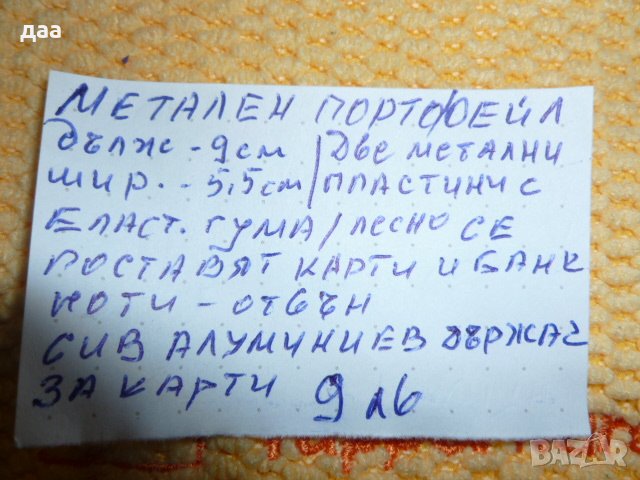 даа
МЕТАЛЕН ПОРТФЕЙЛ
дълж - 9 см / ДВЕ МЕТАЛНИ
ШИР. - 5,5 см / ПЛАСТИНИ С
ЕЛАСТ. ГУМА / ЛЕСНО СЕ
ПОСТАВЯТ КАРТИ И БАНК
НОТИ - ОТВЪН
СИВ АЛУМИНИЕВ държач
ЗА КАРТИ 9 лв
BAZAR